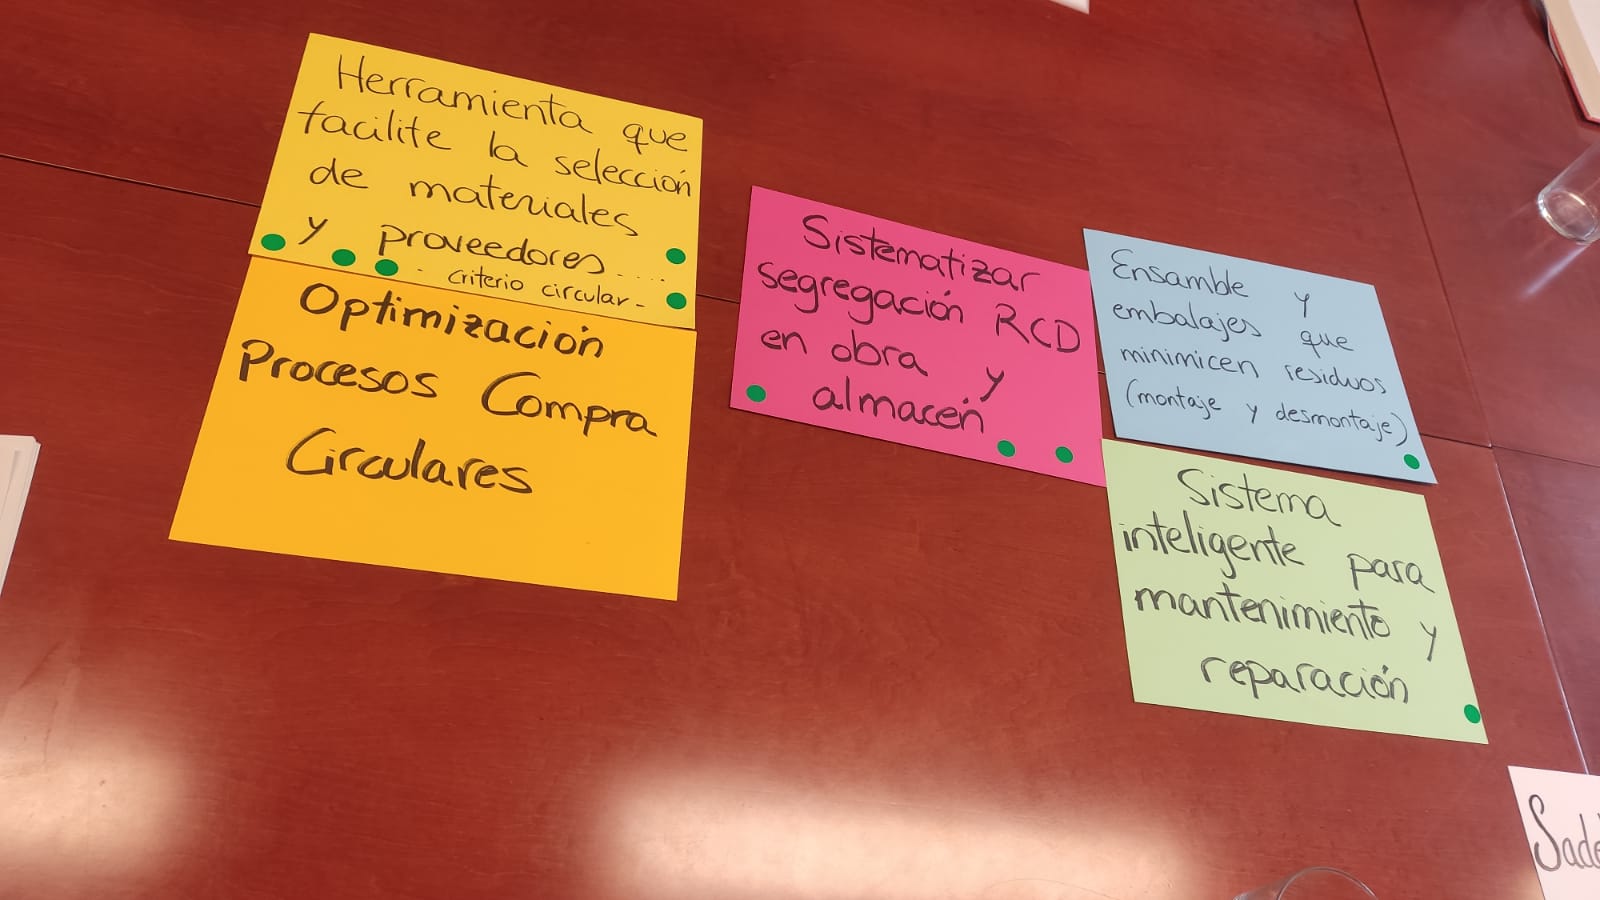 Herramienta que
facilite la selección
de materiales
y proveedores....
- criterio circular -
Optimización
Procesos Compra
Circulares
Sistematizar
segregación RCD
en obra y
almacén
Ensamble y
embalajes que
minimicen residuos
(montaje y desmontaje)
Sistema
inteligente para
mantenimiento y
reparación